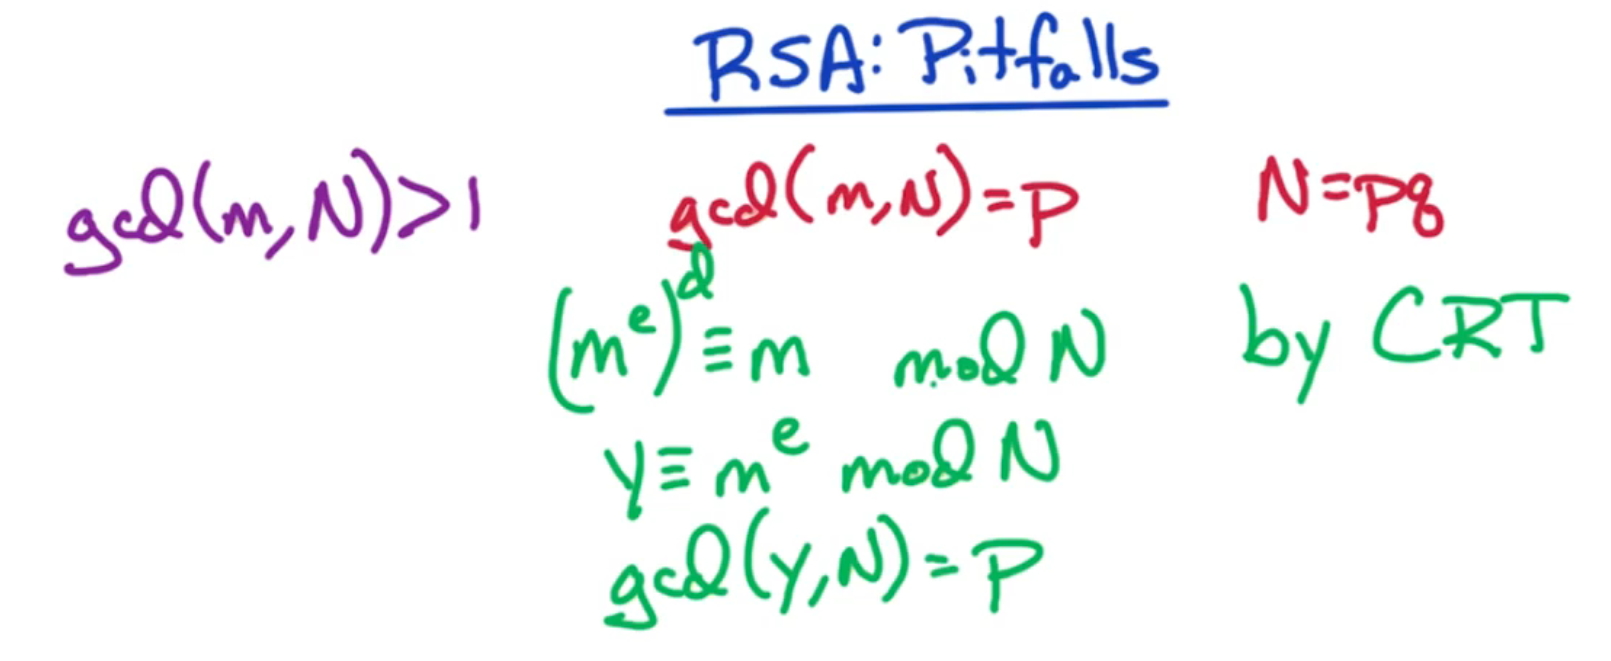 RSA: Pitfalls
gcd(m,N)>1 gcd(m,N)=p N=pq
(m^e)^d ≡ m mod N by CRT
y ≡ m^e mod N
gcd(y,N)=p